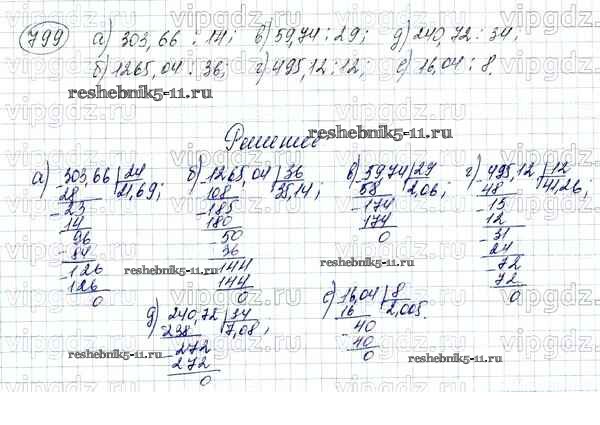 799 а) 303,66 : 14; в) 59,74 : 29; д) 240,72 : 34;
б) 1265,04 : 36; г) 495,12 : 12; е) 16,04 : 8.
reshebnik5-11.ru
Решение
а) 303,66 24 б) 1265,04 36 в) 59,74 29 г) 495,12 12
28 21,69; 108 35,14; 58 2,06; 48 41,26;
23 185 174 15
14 180 174 12
96 50 0 31
84 36 24
126 144 72
126 144 72
0 0 0
reshebnik5-11.ru
д) 240,72 34 е) 16,04 8
238 7,08; 16 2,005.
272 40
272 40
0 0
reshebnik5-11.ru
vipgdz.ru